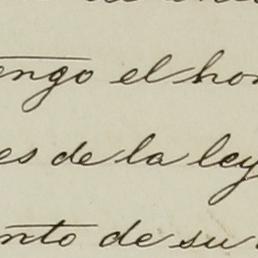 engo el hon
es de la ley
nto de su